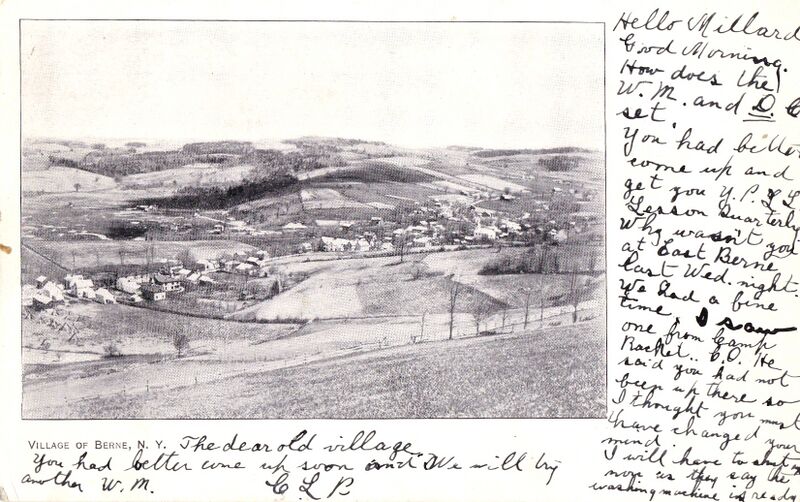 Hello Millard
Good Morning.
How does the
W. M. and D. C
set.
You had better
come up and
get you Y. P. L L
Lesson Quarterly
Why wasn't you
at East Berne
last Wed. night.
We had a fine
time. I saw
one from Camp
Rachel.. C.O. He
said you had not
been up there so
I thought you must
have changed your
mind.
I will have to shut
now as they say the
washing machine is ready
VILLAGE OF BERNE, N. Y. The dear old village.
You had better come up soon and We will try
another W. M. C L B